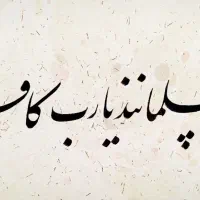 سلمانند یارب کاف